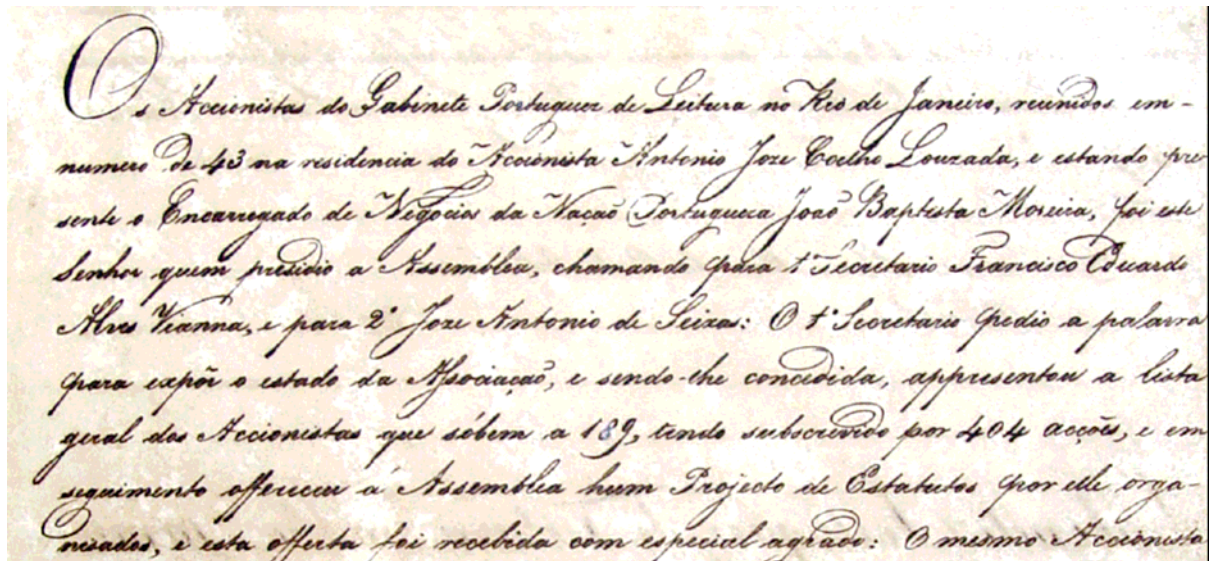 Os Accionistas do Gabinete Portuguez de Leitura no Rio de Janeiro, reunidos em-
numero de 43 na residencia do Accionista Antonio Joze Coelho Louzada, e estando pre
sente o Encarregado de Negocios da Nação Portugueza João Baptista Moreira, foi este
Senhor quem presidio a Assemblea, chamando para 1º Secretario Francisco Eduardo
Alves Vianna, e para 2º Joze Antonio de Seixas: O 1º Secretario pedio a palavra
para expôr o estado da Associação, e sendo-lhe concedida, appresentou a lista
geral dos Accionistas que sóbem a 189, tendo subscrevido por 404 acções, e em
seguimento offereceu á Assemblea hum Projecto de Estatutos por elle orga-
nisados, e esta offerta foi recebida com especial agrado: O mesmo Accionista